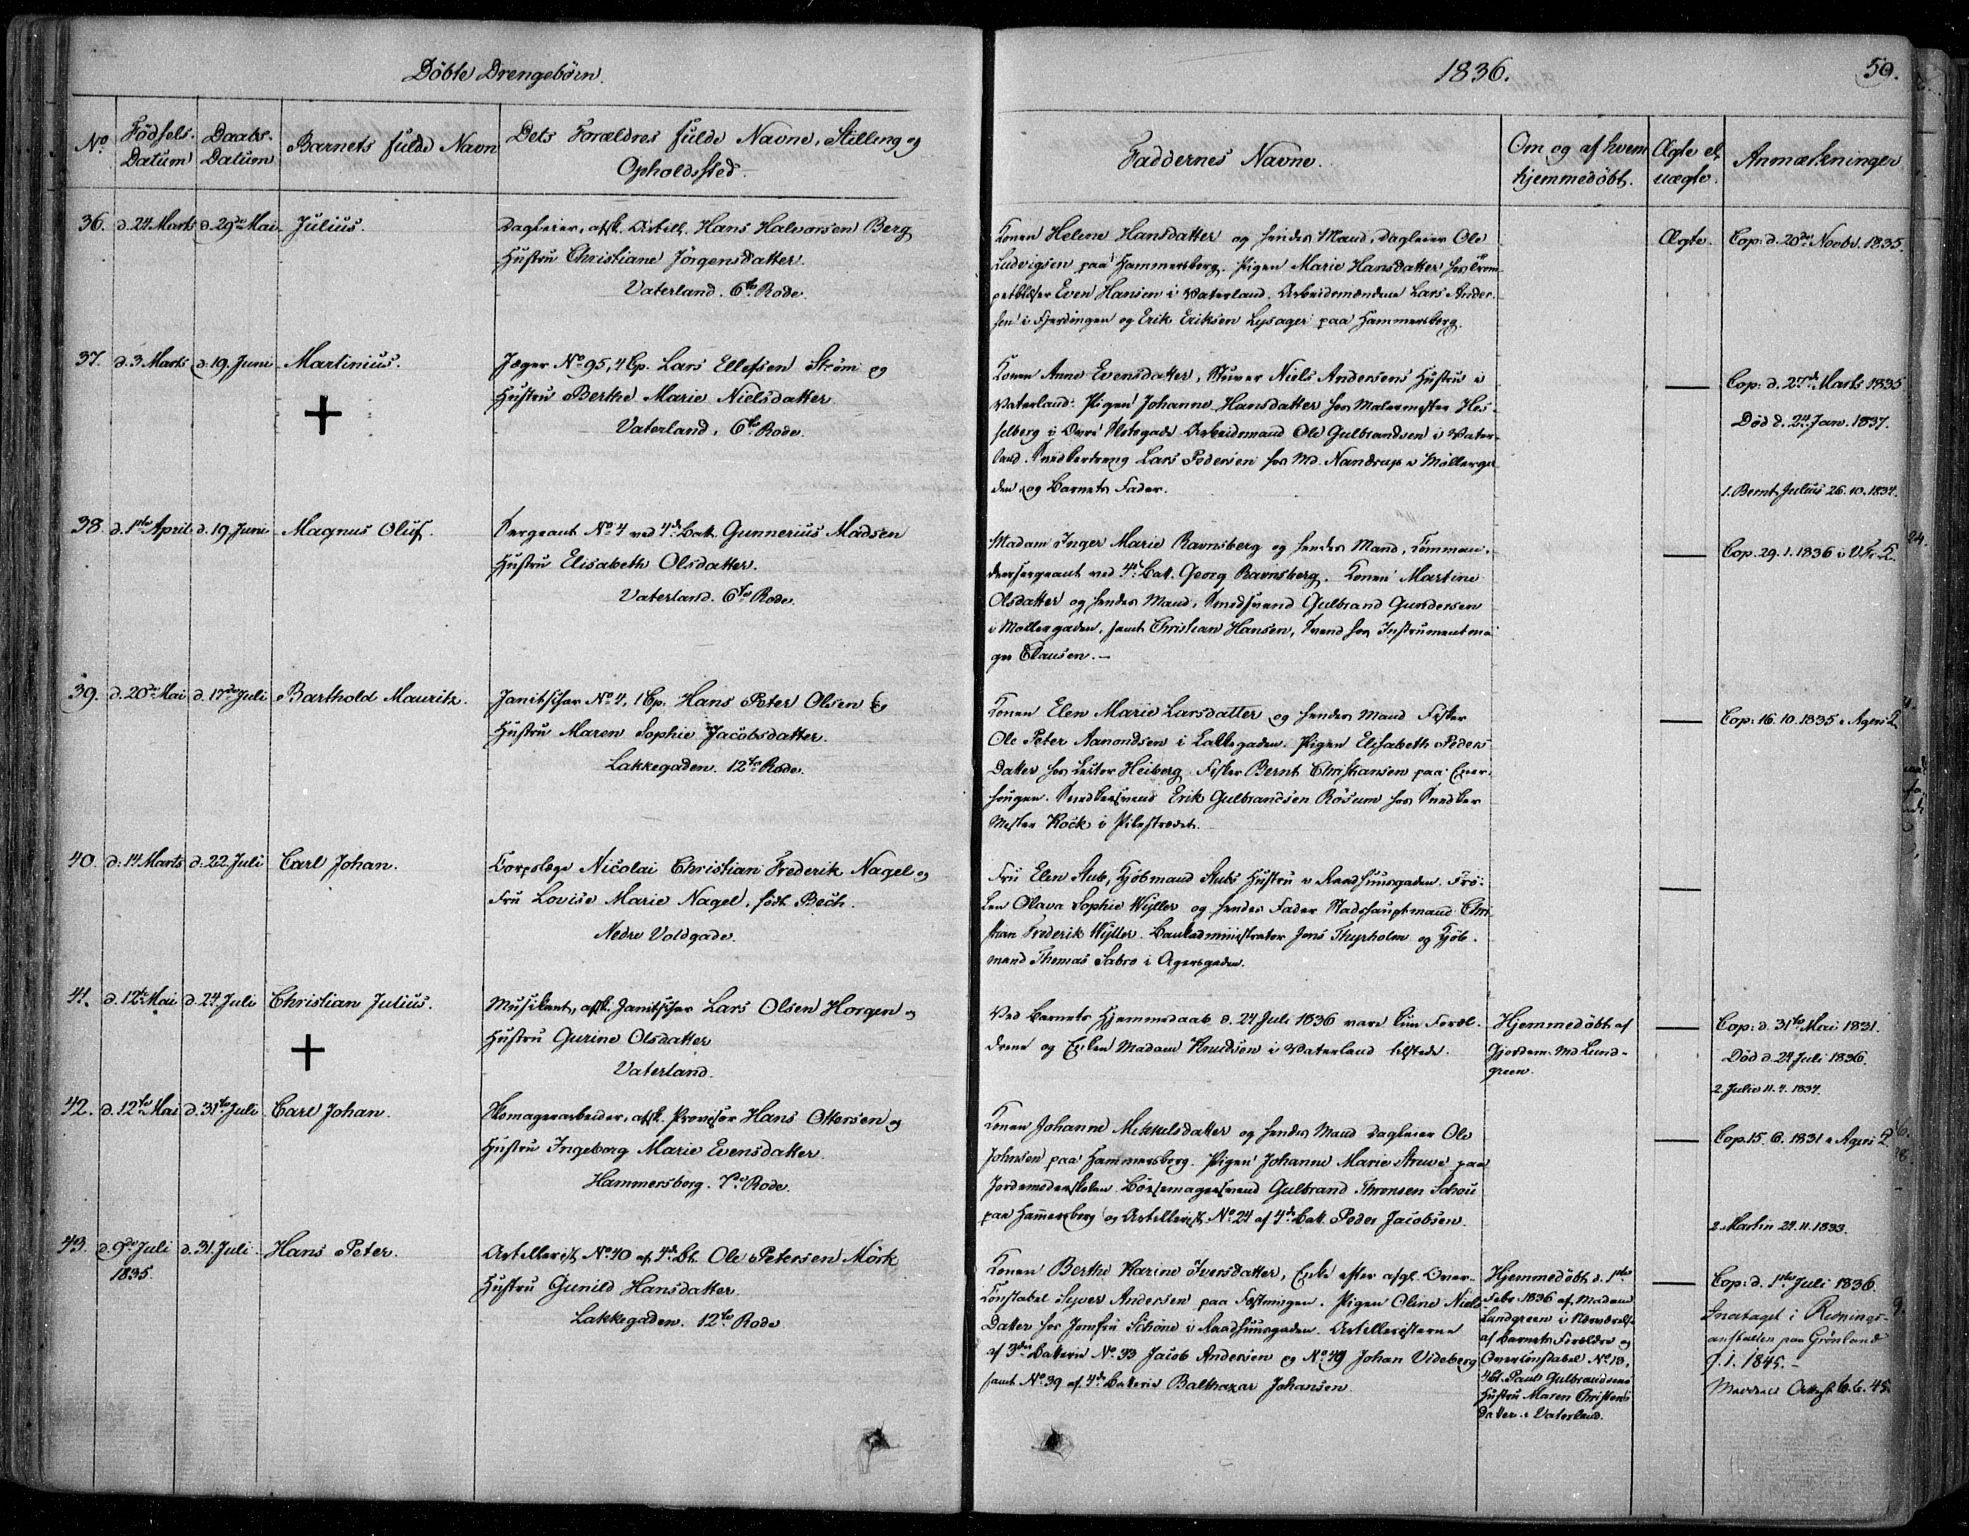 Döbte Drengebörn.
1836.
50.
No
Födsels-Datum
Daabs-Datum
Barnets fulde Navn
Dets Forældres fulde Navne, Stilling og Opholdssted.
Faddernes Navne.
Om og af hvem hjemmedöbt.
Ægte el. uægte.
Anmærkninger
36. d. 24 Marts d. 29de Mai Julius.
Dagleier, afsk. Artill. Hans Halvorsen Berg
Hustru Christiane Jörgensdatter.
Vaterland. 6te Rode.
Konen Helene Hansdatter og hendes Mand, Dagleier Ole
Ludvigsen paa Hammersborg. Pigen Marie Hansdatter hos Trom-
petblæser Even Hansen i Vaterland. Arbeidsmændene Lars Ander-
sen i Fjerdingen og Erik Eriksen Lysager paa Hammersborg.
Ægte.
Cop: d. 20de Novbr. 1835.
37. d. 3. Marts d. 19. Juni Martinius.
Jæger No 95, 4 Cp. Lars Ellefsen Ström og
Hustru Berthe Marie Nielsdatter
Vaterland, 6te Rode.
Konen Anne Evensdatter, Stuver Niels Andersens Hustru i
Vaterland. Pigen Johanne Hansdatter hos Malermester Hes-
selberg i Övre Slotsgade. Arbeidsmand Ole Gulbrandsen i Vater-
land. Snedkerdreng Lars Pedersen hos Md. Nandrup i Möllerga-
den og Barnets Fader.
—
Cop: d. 27de Marts 1835
Död d. 24. Jan. 1837.
1. Bernt Julius 26.10.1834.
38. d. 1ste April d. 19. Juni Magnus Oluf.
Sergeant No 4 ved 4de Batt. Gunnerius Madsen
Hustru Elisabeth Olsdatter.
Vaterland. 6te Rode.
Madam Inger Marie Ravnsberg og hendes Mand, Comman-
deersergeant ved 4de Batt. Georg Ravnsberg. Konen Martine
Olsdatter og hendes Mand, Smedsvend Gulbrand Gundersen
i Möllergaden, samt Christian Hansen, Svend hos Instrumentma-
ger Clausen. —
—
Cop. 29.1.1836 i V. Fr. K.
39. d. 20de Mai d. 17de Juli Barthold Mauritz.
Janitschar No 4, 1 Cp. Hans Peter Olsen og
Hustru Maren Sophie Jacobsdatter.
Lakkegaden. 12te Rode.
Konen Elen Marie Larsdatter og hendes Mand Fisker
Ole Peter Aamondsen i Lakkegaden. Pigen Elisabeth Peders-
datter hos Lector Heiberg. Fisker Bernt Christiansen paa Ener-
haugen. Snedkersvend Erik Gulbrandsen Rösum hos Snedker
Mester Kock i Pilestredet.
—
Cop: 16.10.1835 i Agers K.
40. d. 14 Marts d. 22. Juli Carl Johan.
Corpslæge Nicolai Christian Frederik Nagel og
Fru Lovise Marie Nagel, född Bech.
Nedre Voldgade.
Fru Elen Stub, Kjöbmand Stubs Hustru i Raadhuusgaden. Frö-
ken Olava Sophie Wyller og hendes Fader Stadshauptmand Chri-
stian Frederik Wyller. Bankadministrator Jens Thyrholm og Kjöb-
mand Thomas Sabro i Agersgaden.
—
41. d. 12te Mai d. 24 Juli Christian Julius.
Musikant, afsk. Janitschar Lars Olsen Horgen og
Hustru Gurine Olsdatter
Vaterland.
Ved Barnets Hjemmedaab d. 24 Juli 1836 vare kun Foræl-
drene og Enken Madam Knudsen i Vaterland tilstede.
Hjemmedöbt af
Gjordem. Md Lund-
green.
—
Cop: d. 31te Mai 1831.
Död d. 24 Juli 1836.
2. Julio 11.7.1834.
42. d. 12te Mai d. 31te Juli Carl Johan.
Skomagerarbeider, afsk. Provisor Hans Ottersen og
Hustru Ingeborg Marie Evensdatter.
Hammersborg. 7de Rode.
Konen Johanne Mikkelsdatter og hendes Mand Dagleier Ole
Johnsen paa Hammersborg. Pigen Johanne Marie Struve paa
Jordemoderskolen. Börsemagersvend Gulbrand Thronsen Schou
paa Hammersborg og Artillerist No 24 af 4de Batt. Peder Jacobsen.
—
Cop. 15.6.1831 i Agers K.
2. Martin 29.11.1833.
43. d. 9de Juli 1835 d. 31. Juli. Hans Peter.
Artillerist No 40 af 4de Bt. Ole Petersen Mörk
Hustru Gunild Hansdatter
Lakkegaden. 12te Rode
Konen Berthe Karine Iversdatter, Enke efter afg. Over-
Constabel Syver Andersen paa Fæstningen. Pigen Oline Niels-
datter hos Jomfru Schöne i Raadhuusgaden. Artilleristerne
af 3die Batterie No 33 Jacob Andersen og No 49 Johan Videberg
samt No 39 af 4de Batterie Balthazar Johansen.
Hjemmedöbt d. 1ste
Febr. 1836 af Madam
Lundgreen i Nærværelse
af Barnets Forældre og
Overconstabel No 13,
4 Bt. Paul Gulbrandsens
Hustru Maren Christens-
datter i Vaterland.
—
Cop: d. 1ste Juli 1836.
Indtaget i Rednings-
anstalten paa Grönland
9.1.1845. —